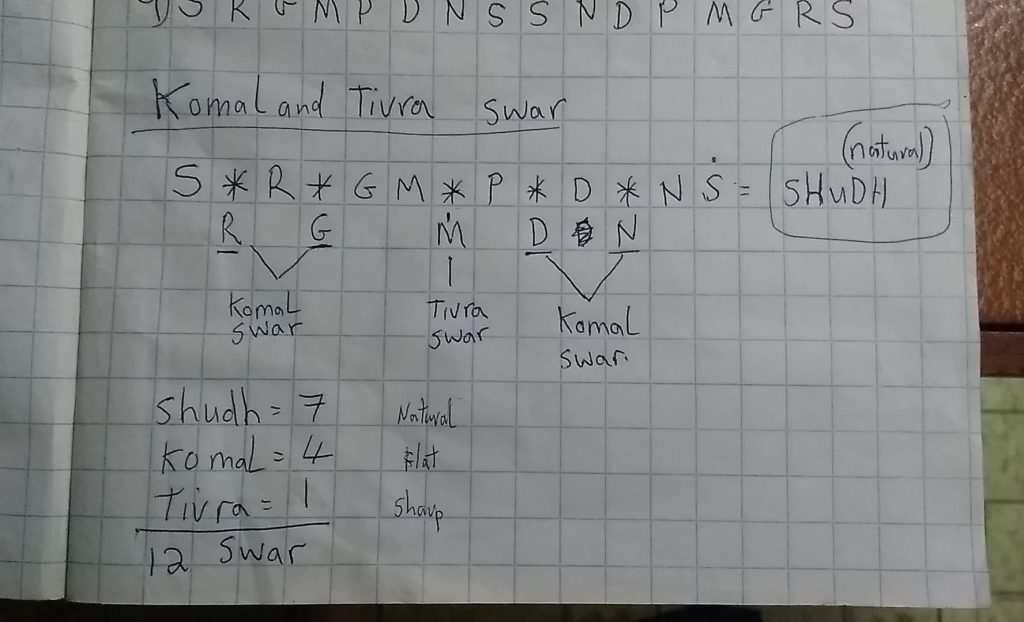 1) S R G M P D N S S N D P M G R S
Komal and Tivra swar
S * R * G M * P * D * N Ṡ = SHUDH (natural)
R G Ḿ D N
Komal swar
Tivra swar
Komal swar.
Shudh = 7 Natural
Komal = 4 Flat
Tivra = 1 Sharp
12 swar